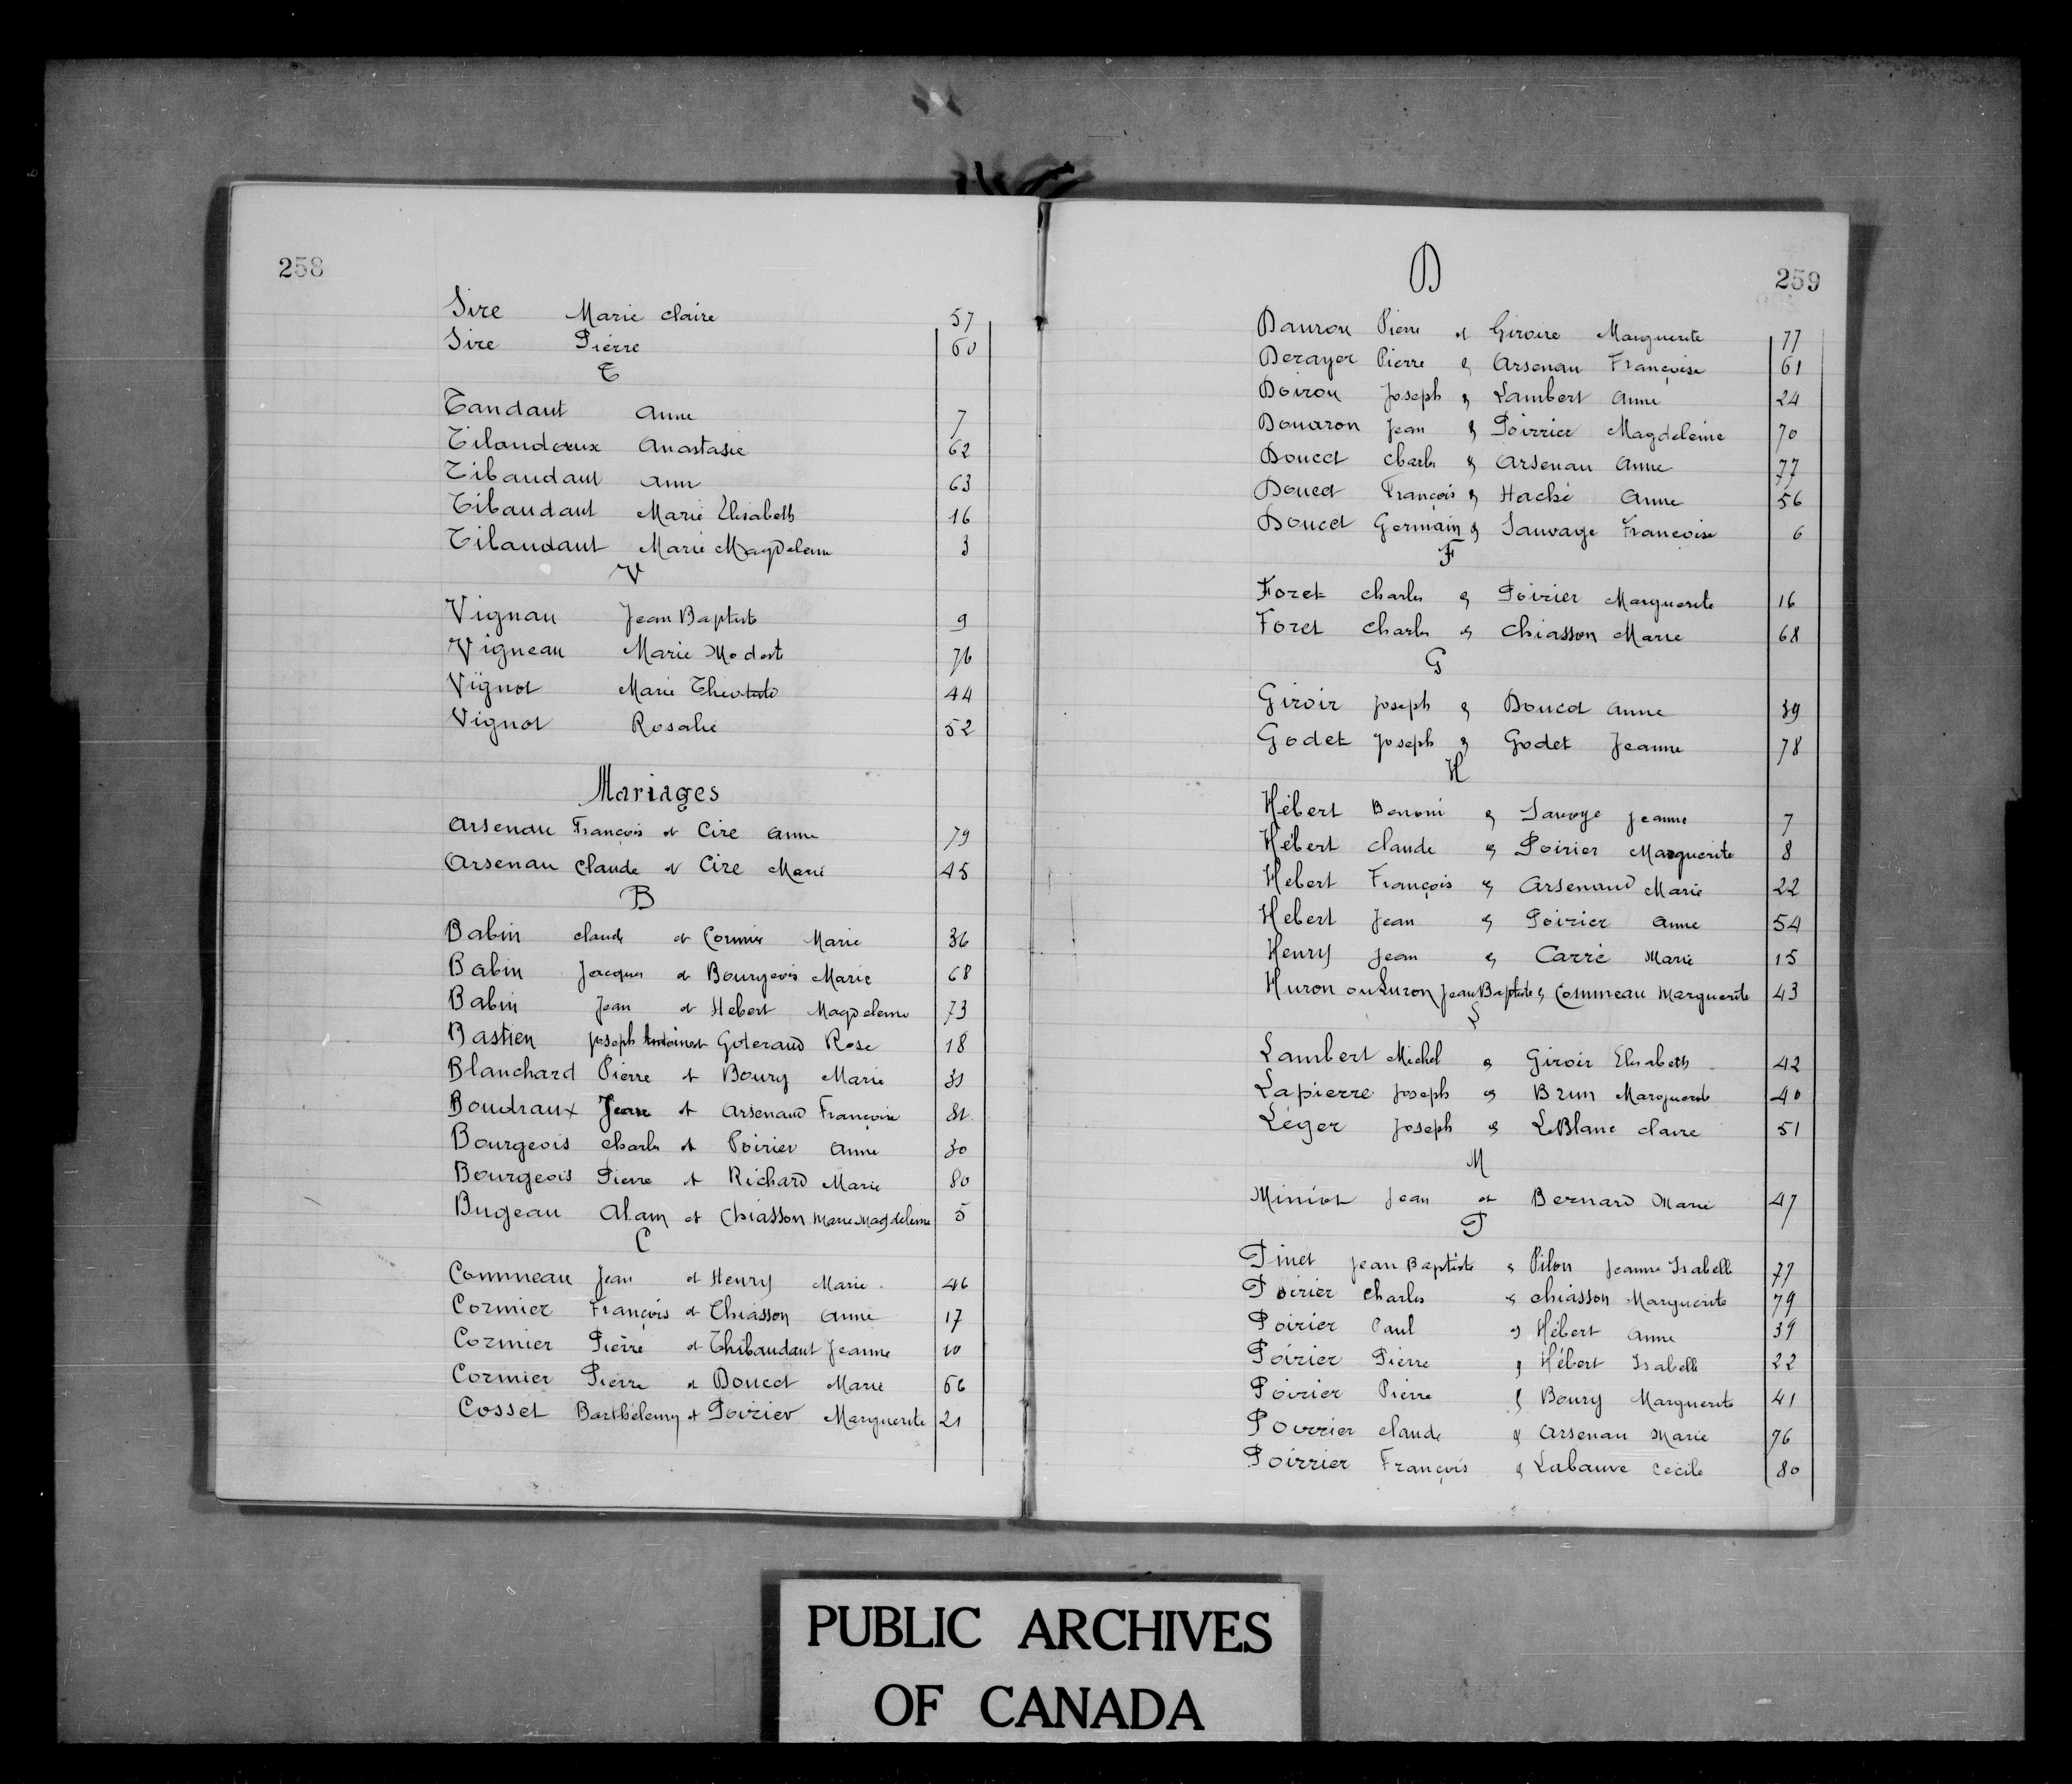 258
Sire Marie Claire 57
Sire Pierre 60
T
Tandaut Anne 7
Tibaudaux Anastasie 62
Tibaudaut Ann 63
Tibaudaut Marie Elisabeth 16
Tibaudaut Marie Magdelene 3
V
Vignau Jean Baptiste 9
Vigneau Marie Modest 76
Vignot Marie 44
Vignot Rosalie 52
Mariages
Arsenau François et Cire Anne 79
Arsenau Claude et Cire Marie 45
B
Babin Claude et Cormier Marie 36
Babin Jacques et Bourgeois Marie 68
Babin Jean et Hebert Magdeleine 73
Bastien Joseph Goteraud Rose 18
Blanchard Pierre et Bourg Marie 31
Boudraux Jean et Arsenaud Françoise 81
Bourgeois Charles et Poirier Anne 30
Bourgeois Pierre et Richard Marie 80
Bugeau Alain et Chiasson Marie Magdeleine 5
C
Commeau Jean et Henry Marie 46
Cormier François et Chiasson Anne 17
Cormier Pierre et Thibaudaut Jeanne 10
Cormier Pierre et Doucet Marie 56
Cosset Barthélemy et Poirier Marguerite 21
D
259
Dauron Pierre et Giroire Marguerite 77
Derayer Pierre & Arsenau Françoise 61
Doiron Joseph & Lambert Anne 24
Douaron Jean & Poirrier Magdeleine 70
Doucet Charles & Arsenau Anne 77
Doucet François & Haché Anne 56
Doucet Germain & Sauvage Francoise 6
F
Foret Charles & Poirier Marguerite 16
Foret Charles & Chiasson Marie 68
G
Giroir Joseph & Doucet Anne 39
Godet Joseph & Godet Jeanne 78
H
Hébert Benoni & Savoye Jeanne 7
Hébert Claude & Poirier Marguerite 8
Hebert François & Arsenaud Marie 22
Hebert Jean & Poirier Anne 54
Henry Jean & Carré Marie 15
Huron ou Luron Jean Baptiste & Commeau Marguerite 43
L
Lambert Michel & Giroir Elisabeth 42
Lapierre Joseph & Brun Marguerite 40
Léger Joseph & LeBlanc Claire 51
M
Miniot Jean et Bernard Marie 47
P
Pinet Jean Baptiste & Pilon Jeanne Isabelle 77
Poirier Charles & Chiasson Marguerite 79
Poirier Paul & Hébert Anne 39
Poirier Pierre & Hébert Isabelle 22
Poirier Pierre & Bourg Marguerite 41
Poirrier Claude & Arsenau Marie 76
Poirrier François & Labauve Cécile 80
PUBLIC ARCHIVES
OF CANADA